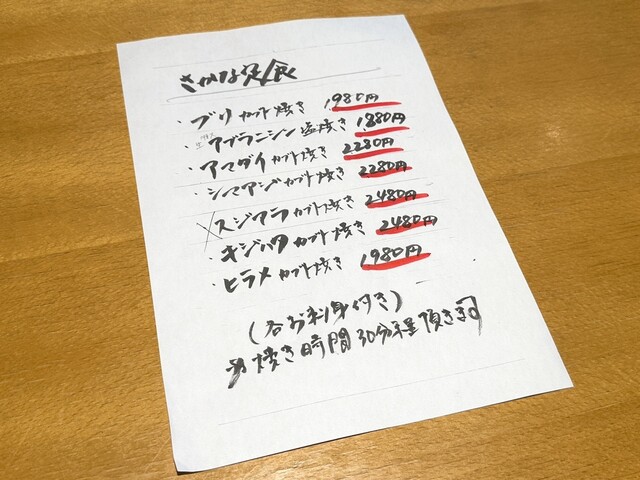 さかな定食
・ブリカブト焼き 1,980円
・アブラニシン塩焼き 1,880円
・アマダイカブト焼き 2,280円
・シマアジカブト焼き 2,280円
スジアラカブト焼き 2,480円
・キジハタカブト焼き 2,480円
・ヒラメカブト焼き 1,980円
(各お刺身付き)
※焼き時間30分程頂きます